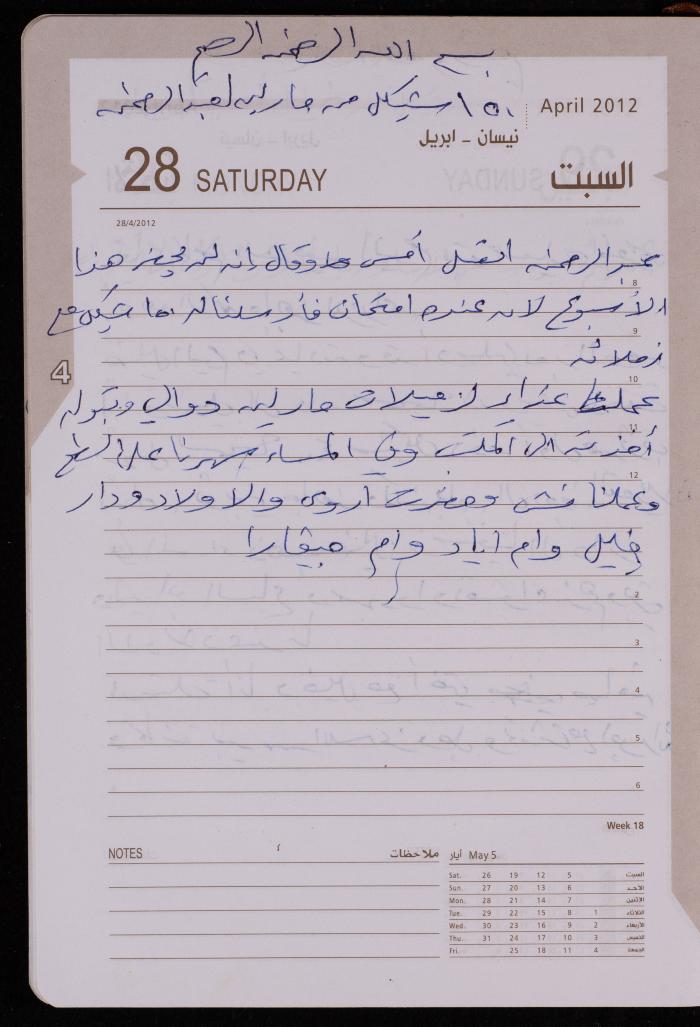 بسم الله الرحمن الرحيم
١٥٠ شيكل من مارلين لعبد الرحمن
April 2012
نيسان - ابريل
28 SATURDAY السبت
28/4/2012
عبد الرحمن اتصل أمس وقال إنه لن يحضر هذا
8
الأسبوع لانه عنده امتحان فأرسلنا له ١٥٠ شيكل مع
9
زملائه
4
10
عملت غداء لزميلات مارلين دوالي وتبولة
11
أخذته الى المكتب وفي المساء سهرنا على السطح
12
وعملنا مشي وحضرت أروى والاولاد ودار
خليل وام اياد وام
2
3
4
5
6
Week 18
NOTES ملاحظات
May 5 أيار
Sat. 26 19 12 5 السبت
Sun. 27 20 13 6 الأحد
Mon. 28 21 14 7 الإثنين
Tue. 29 22 15 8 1 الثلاثاء
Wed. 30 23 16 9 2 الأربعاء
Thu. 31 24 17 10 3 الخميس
Fri. 25 18 11 4 الجمعة